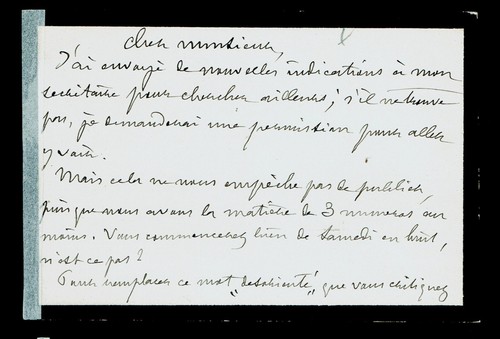 Cher monsieur,
J'ai envoyé de nouvelles indications à mon
secrétaire pour chercher ailleurs; s'il ne trouve
pas, je demanderai une permission pour aller
y voir.
Mais cela ne nous empêche pas de publier,
puisque nous avons la matière de 3 numéros au
moins. Vous commencerez bien de samedi en huit,
n'est ce pas?
Pour remplacer ce mot "désorienté", que vous critiquez